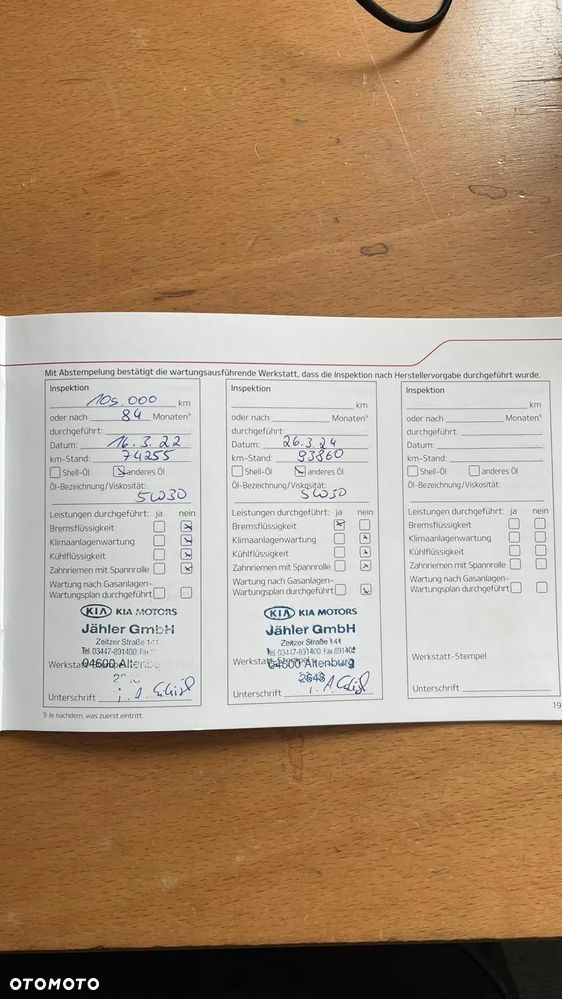 Mit Abstempelung bestätigt die wartungsausführende Werkstatt, dass die Inspektion nach Herstellervorgabe durchgeführt wurde.
Inspektion
105.000 km
oder nach 84 Monaten⁹
durchgeführt:
Datum: 16.3.22
km-Stand: 74255
Shell-Öl anderes Öl
Öl-Bezeichnung/Viskosität:
5W30
Leistungen durchgeführt: ja nein
Bremsflüssigkeit
Klimaanlagenwartung
Kühlflüssigkeit
Zahnriemen mit Spannrolle
Wartung nach Gasanlagen-
Wartungsplan durchgeführt
KIA KIA MOTORS
Jähler GmbH
Zeitzer Straße 141
Tel. 03447-891400, Fax
04600 Altenburg
Unterschrift
Inspektion
km
oder nach Monaten⁹
durchgeführt:
Datum: 26.3.24
km-Stand: 93860
Shell-Öl anderes Öl
Öl-Bezeichnung/Viskosität:
5W30
Leistungen durchgeführt: ja nein
Bremsflüssigkeit
Klimaanlagenwartung
Kühlflüssigkeit
Zahnriemen mit Spannrolle
Wartung nach Gasanlagen-
Wartungsplan durchgeführt
KIA KIA MOTORS
Jähler GmbH
Zeitzer Straße 141
Tel. 03447-891400, Fax 891402
Werkstatt-Stempel
04600 Altenburg
2648
Unterschrift
Inspektion
km
oder nach Monaten⁹
durchgeführt:
Datum:
km-Stand:
Shell-Öl anderes Öl
Öl-Bezeichnung/Viskosität:
Leistungen durchgeführt: ja nein
Bremsflüssigkeit
Klimaanlagenwartung
Kühlflüssigkeit
Zahnriemen mit Spannrolle
Wartung nach Gasanlagen-
Wartungsplan durchgeführt
Werkstatt-Stempel
Unterschrift
9 Je nachdem, was zuerst eintritt.
19
OTOMOTO